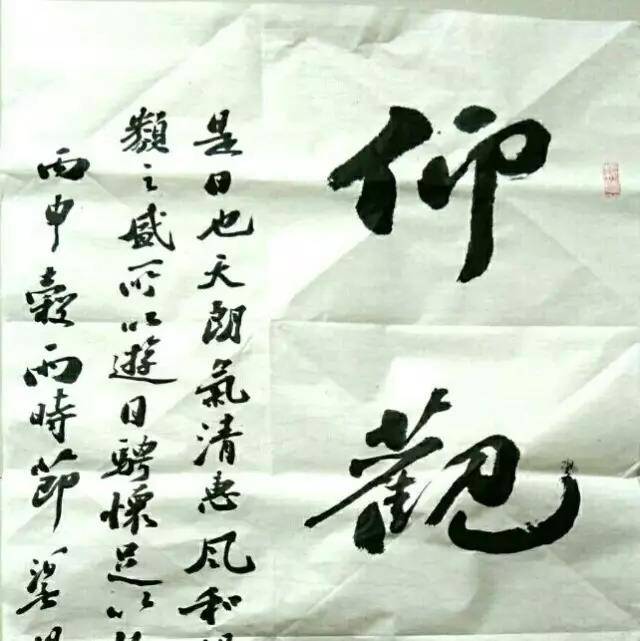 仰觀
是日也天朗氣清惠風和
類之盛所以遊目騁懷足以
丙申穀雨時節